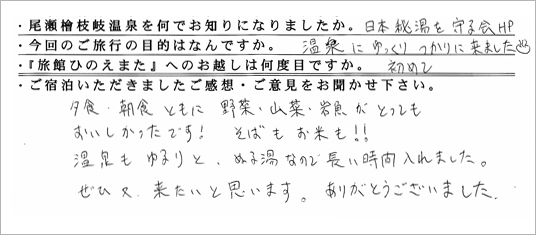 ・尾瀬檜枝岐温泉を何でお知りになりましたか。日本秘湯を守る会HP
・今回のご旅行の目的はなんですか。温泉にゆっくりつかりに来ました
・『旅館ひのえまた』へのお越しは何度目ですか。初めて
・ご宿泊いただきましたご感想・ご意見をお聞かせ下さい。
夕食・朝食ともに野菜・山菜・岩魚がとっても
おいしかったです! そばもお米も!!
温泉もゆるりと、ぬる湯なので長い時間入れました。
ぜひ又、来たいと思います。ありがとうございました。